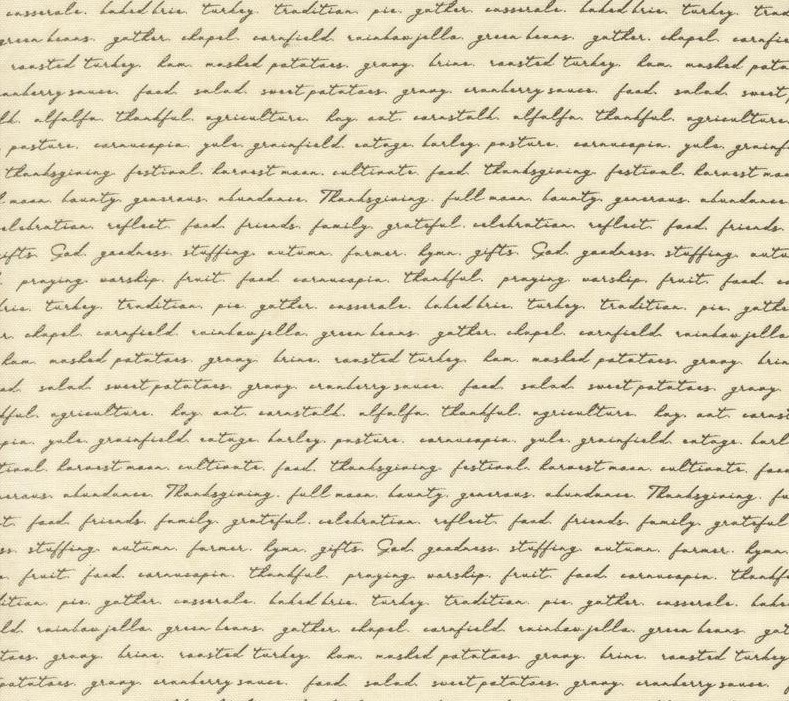 casserole. baked brie. turkey. tradition. pie. gather. casserole. baked brie. turkey.
green beans. gather. chapel. cornfield. rainbow jello. green beans. gather. chapel.
roasted turkey. ham. mashed potatoes. gravy. brine. roasted turkey. ham. mashed
cranberry sauce. food. salad. sweet potatoes. gravy. cranberry sauce. food. salad. sweet
alfalfa. thankful. agriculture. hay. oat. cornstalk. alfalfa. thankful. agriculture.
pasture. cornucopia. yule. grainfield. cotage. barley. pasture. cornucopia. yule.
thanksgiving. festival. harvest moon. cultivate. food. thanksgiving. festival. harvest
moon. bounty. generous. abundance. Thanksgiving. full moon. bounty. generous. abundance.
celebration. reflect. food. friends. family. grateful. celebration. reflect. food. friends.
gifts. God. goodness. stuffing. autumn. farmer. hymn. gifts. God. goodness. stuffing.
praying. worship. fruit. food. cornucopia. thankful. praying. worship. fruit. food.
turkey. tradition. pie. gather. casserole. baked brie. turkey. tradition. pie.
chapel. cornfield. rainbow jello. green beans. gather. chapel. cornfield. rainbow jello.
ham. mashed potatoes. gravy. brine. roasted turkey. ham. mashed potatoes. gravy.
salad. sweet potatoes. gravy. cranberry sauce. food. salad. sweet potatoes. gravy.
agriculture. hay. oat. cornstalk. alfalfa. thankful. agriculture. hay. oat.
yule. grainfield. cotage. barley. pasture. cornucopia. yule. grainfield. cotage.
harvest moon. cultivate. food. thanksgiving. festival. harvest moon. cultivate.
abundance. Thanksgiving. full moon. bounty. generous. abundance. Thanksgiving.
food. friends. family. grateful. celebration. reflect. food. friends. family. grateful.
stuffing. autumn. farmer. hymn. gifts. God. goodness. stuffing. autumn. farmer. hymn.
fruit. food. cornucopia. thankful. praying. worship. fruit. food. cornucopia.
pie. gather. casserole. baked brie. turkey. tradition. pie. gather. casserole.
rainbow jello. green beans. gather. chapel. cornfield. rainbow jello. green beans.
gravy. brine. roasted turkey. ham. mashed potatoes. gravy. brine. roasted turkey.
potatoes. gravy. cranberry sauce. food. salad. sweet potatoes. gravy. cranberry sauce.